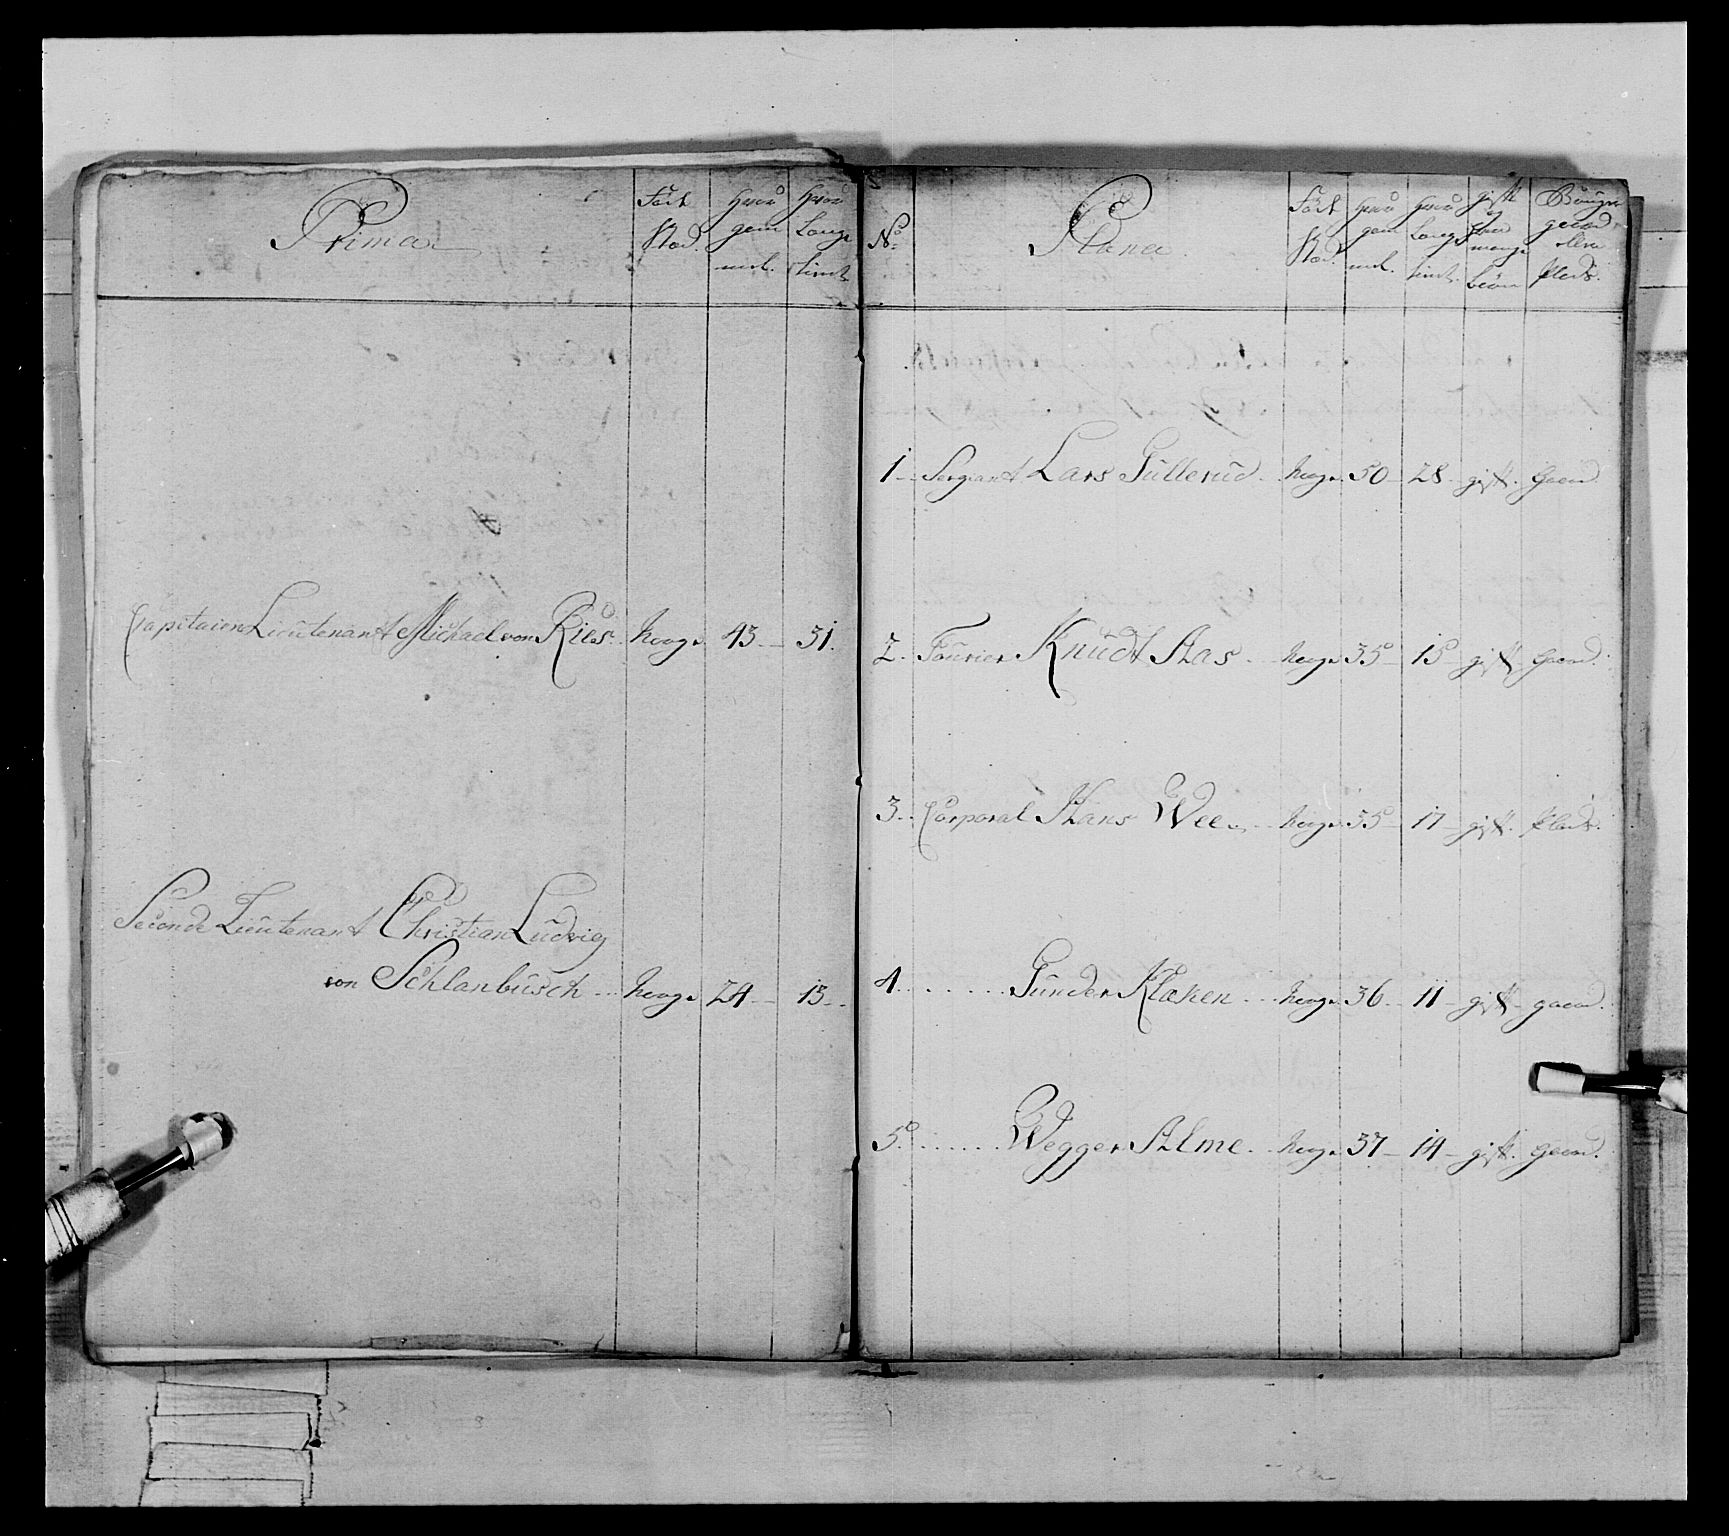 Prima
Født
Stæd.
hvor
gam
mel.
hvor
Længe
tient
Capitaien Lieutenant Michael von Ries. Norge 43 31.
Seconde Lieutenant Christian Ludvig
von Schlanbusch Norge 24 13
No
Plana
Født
Stæd.
hvor
gam
mel.
hvor
Længe
tient.
gift
og
hvor
mange
børn
gaard
eller
Plads.
1 Sergeant Lars Gullerud Norge 50 28 gift. Gaard
2. Fourier Knudt Aas Norge 35 15 gift Gaard.
3. Corporal Hans Wee Norge 35 17 gift. Plads.
4 Gunder Klæken Norge 36 11 gift gaard.
5 Wegger Alme Norge 37 14 gift. Gaard.